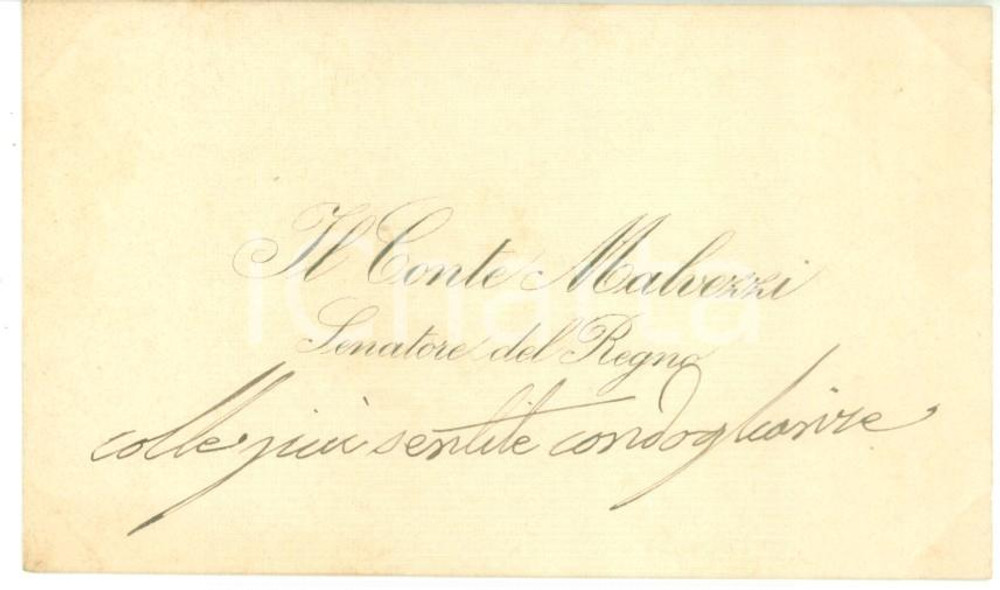 Il Conte Malvezzi
Senatore del Regno
colle più sentite condoglianze
iCharta